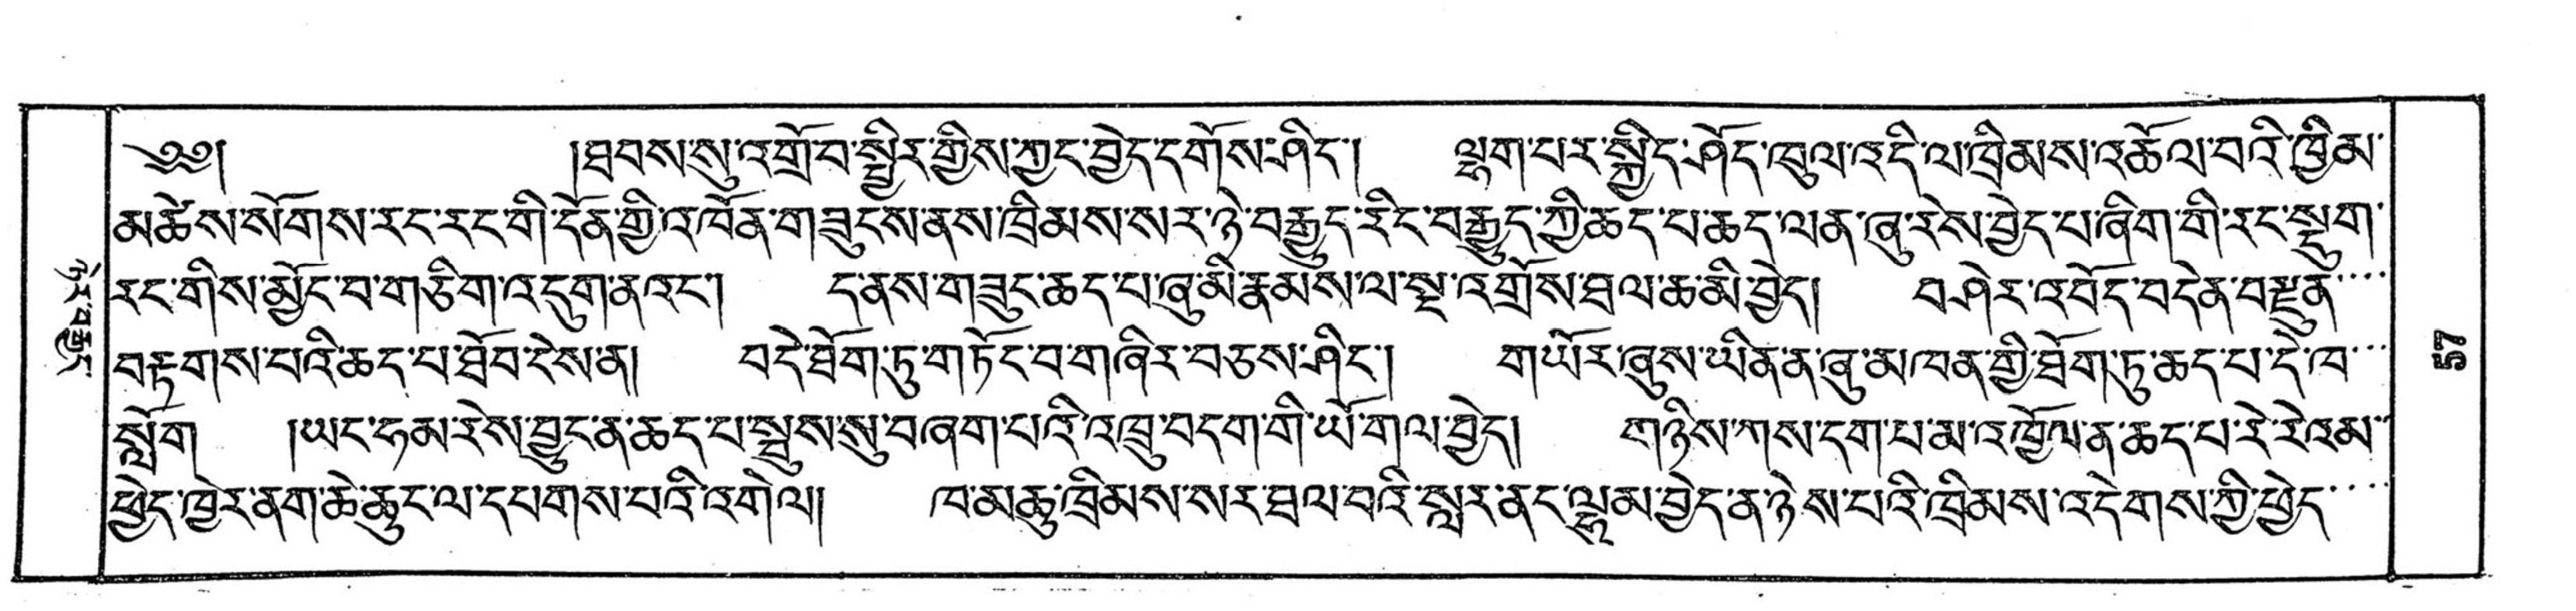 ༄༅། །ཐབས་སུ་འགྲོ་བ་སྤྱིར་གྱིས་ཀྱང་བྱེད་དགོས་ཤིད། ལྷག་པར་སྐྱིད་ཤོད་ཁུལ་འདི་ལ་ཁྲིམས་འཚོལ་བའི་ཁྱིམ་
མཚེས་སོགས་རང་རང་གི་དོན་གྱི་འཁོན་གཟུངས་ནས་ཁྲིམས་སར་ཉེ་བརྒྱུད་རིང་བརྒྱུད་ཀྱི་ཆད་པ་ཆད་ལན་ཞུ་རེས་བྱེད་པ་ཞིག་གི་རང་སྡུག་
རང་གིས་མྱོང་བ་གཅིག་འདུག་ནའང་། དནས་གཟུང་ཆད་པ་ཞུ་མི་རྣམས་ལ་སྔ་འགྲོས་ཐལ་ཆ་མི་བྱེད། བཤེར་འབོད་བདེན་བརྫུན་
བརྟགས་པའི་ཆད་པ་ཐོབ་ངེས་ན། བདེ་ཐོག་ཏུ་གཏོང་བ་གཞིར་བཅས་ཤིང་། གཡོར་ཞུས་ཡིན་ན་ཞུ་མཁན་གྱི་ཐོག་ཏུ་ཆད་པ་དེ་ཁ་
སློག །ཡང་ཧམ་རེས་བྱུང་ན་ཆད་པ་སྡུས་སུ་བཞག་པའི་འཁྲུ་བདག་གི་ཡོ་གལ་བྱེད། གཉིས་ཀས་དག་པ་མ་འཁྱོལ་ན་ཆད་པ་རེ་རེའམ་
ཕྱེད་ཁྱེར་ནག་ཆེ་ཆུང་ལ་དཔགས་པའི་འགེལ། ཁ་མཆུ་ཁྲིམས་སར་ཐལ་བའི་སླར་ནང་ལྷུམ་བྱེད་ན་ཉེས་པའི་ཁྲིམས་འདེགས་ཀྱི་ཕྱེད་